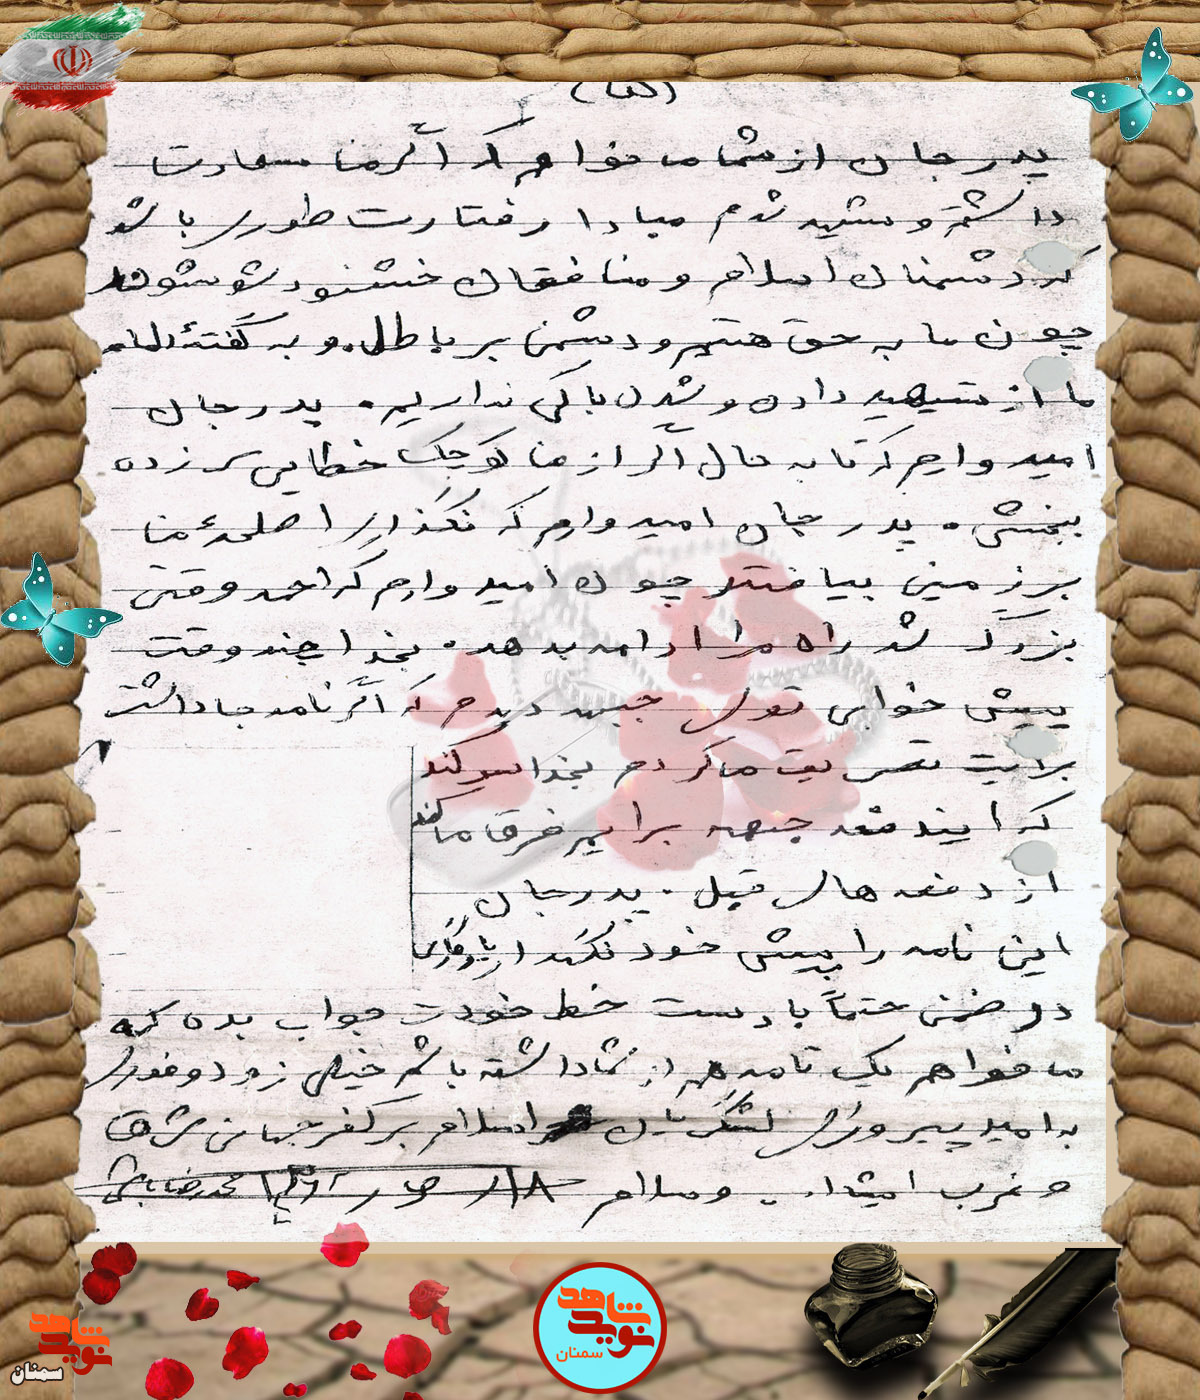 پدر جان از شما می خواهم که اگر من سعادت
داشتم و شهید شدم مبادا رفتارت طوری باشد
که دشمنان اسلام و منافقان خشنود شوند
چون ما به حق هستیم و دشمن بر باطل. و به گفته امام
ما از شهید دادن و شدن باکی نداریم. پدر جان
امیدوارم که تا به حال اگر از من کوچک خطایی سر زده
ببخشی. پدر جان امیدوارم که نگذاری اسلحهء من
بر زمین بیافتد چون امیدوارم که احمد وقتی
بزرگ شد راه مرا ادامه بدهد. بخدا چند وقت
پیش خوابی توی جبهه دیدم که اگر نامه جا داشت
برایت تعریف می کردم بخدا سوگند
که ایندفعه جبهه برایم فرق می کند
از دفعه های قبل. پدر جان
این نامه را پیش خود نگهدار یادگاری
در ضمن حتماً با دست خط خودت جواب بده که
می خواهم یک نامه هم از شما داشته باشم خیلی زود و فوری
به امید پیروزی لشگریان اسلام بر کفر جهانی شرق
و غرب انشاا... وسلام محمدرضا
نوید شاهد
سمنان
نوید شاهد
سمنان